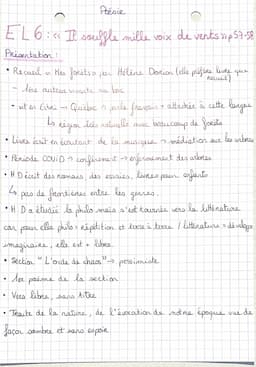 Poésie
EL6 : "Il souffle mille voix de vents" p57-58
Présentation :
• Recueil "Mes forêts" par Hélène Dorion (elle préfère livre que recueil)
- 1ère autrice vivante au bac
- vit en Live → Québec → parle français + attachée à cette langue
↳ région très naturelle avec beaucoup de forêts
• Livre écrit en écoutant de la musique → méditation sur les arbres
• Période COVID → confinement → enfermement des arbres
• H D écrit des romans, des essais, livres pour enfants
↳ pas de frontières entre les genres.
• H D a étudié la philo mais s'est tournée vers la littérature
car pour elle philo = répétition et terre à terre / littérature = développe
imaginaire, elle est + libre.
• Section "L'onde du chaos" → pessimiste
• 1er poème de la section
• Vers libre, sans titre
• Traite de la nature, de l'évocation de notre époque vue de
façon sombre et sans espoir